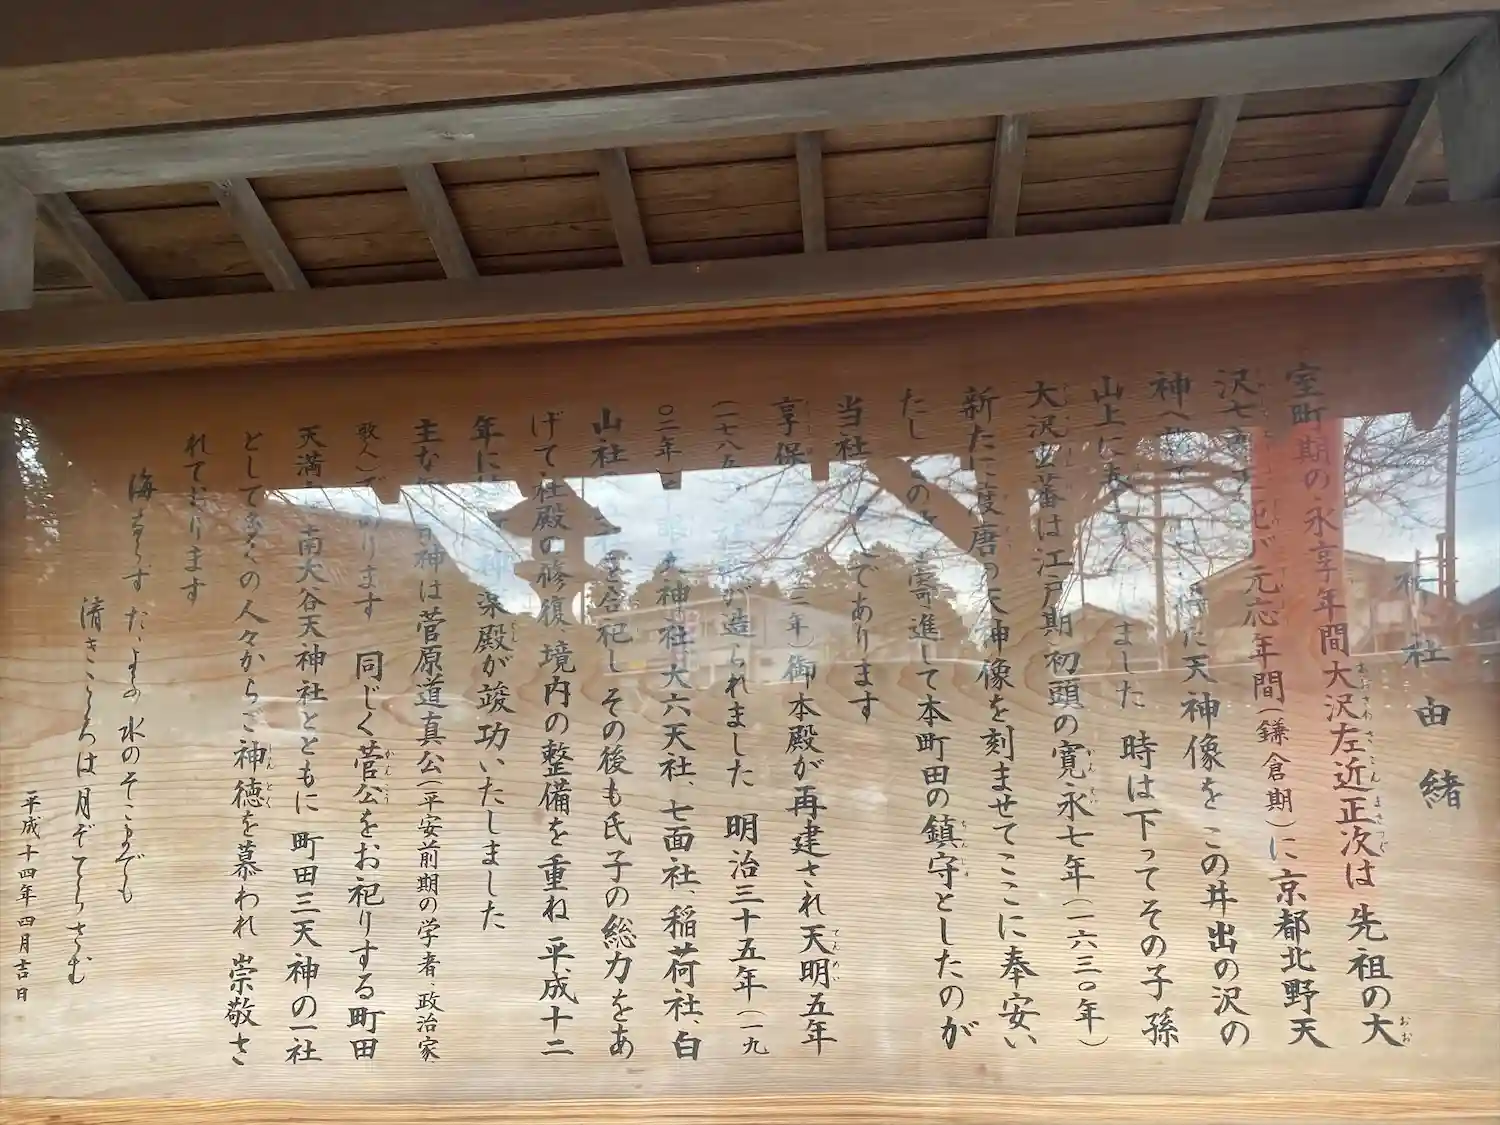 社由緒
室町期の永享年間大沢左近正次は 先祖の大
沢 が元応年間(鎌倉期)に京都北野天
神へ た天神像を この井出の沢の
山上に ました 時は下ってその子孫
大沢玄蕃は江戸期初頭の寛永七年(一六三〇年)
新たに渡唐の天神像を刻ませてここに奉安い
たし 寄進して本町田の鎮守としたのが
当社 であります
享保 三年)御本殿が再建され 天明五年
(一七八五 が造られました 明治三十五年(一九
〇二年) 神社、大六天社、七面社、稲荷社、白
山社 を合祀し その後も氏子の総力をあ
げて社殿の修復、境内の整備を重ね 平成十二
年に 神楽殿が竣功いたしました
主な 神は菅原道真公(平安前期の学者、政治家
歌人)で ります 同じく菅公をお祀りする町田
天満 南大谷天神社とともに 町田三天神の一社
として多くの人々からご神徳を慕われ 崇敬さ
れております
海ならず たゝよふ 水のそこまでも
清きこころは月ぞてらさむ
平成十四年四月吉日